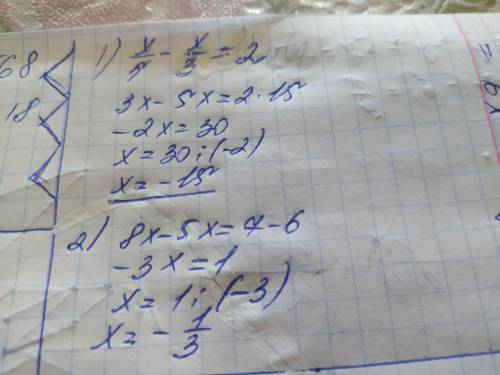 68
18
1) x/5 - x/3 = 2
3x - 5x = 2 · 15
-2x = 30
x = 30 : (-2)
x = -15
2) 8x - 5x = 7 - 6
-3x = 1
x = 1 : (-3)
x = - 1/3